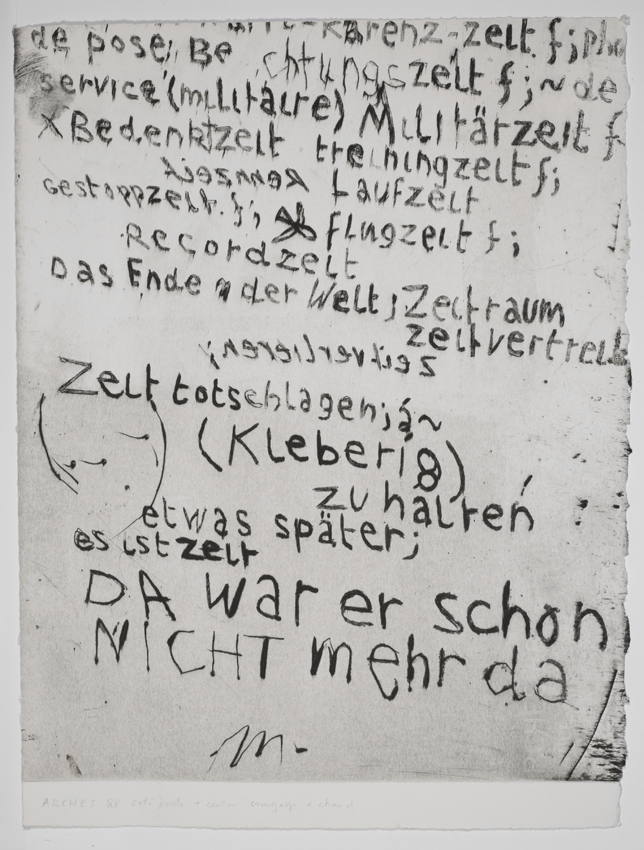 Karenz-zeit f;
de pose; Be chtungszeit f; ~ de
service (militaire) Militärzeit f
x Bedenktzeit treiningzeit f;
Rennzeit Laufzeit
Gestoppzeit. f; flugzeit f;
Recordzeit
Das Ende der Welt; Zeitraum
zeitvertreib
zeitverlieren;
Zeit totschlagen; á ~
(Kleberig)
zu halten
etwas später;
es ist zeit
DA war er schon
NICHT mehr da
m.
ARCHES 88